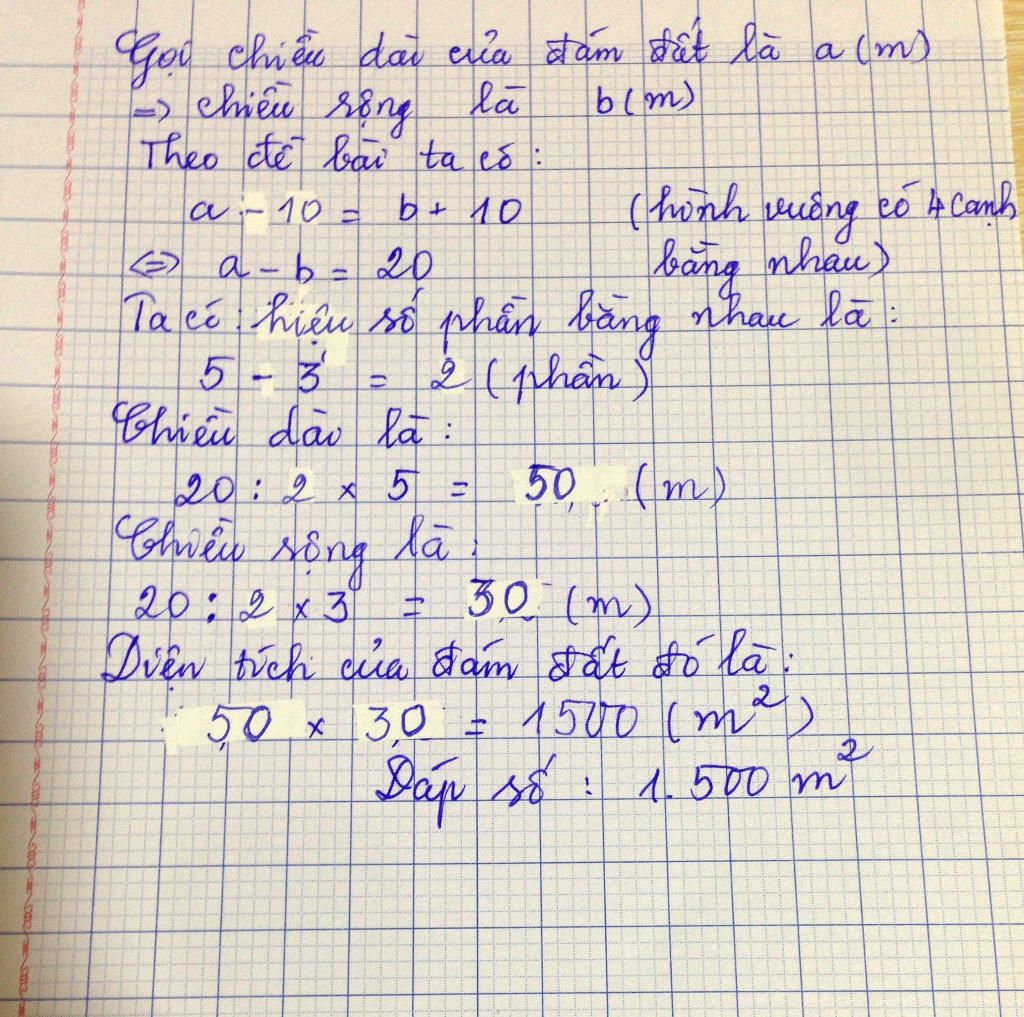 Gọi chiều dài của đám đất là a (m)
=> chiều rộng là b (m)
Theo đề bài ta có:
a - 10 = b + 10 (hình vuông có 4 cạnh
<=> a - b = 20 bằng nhau)
Ta có: hiệu số phần bằng nhau là:
5 - 3 = 2 (phần)
Chiều dài là:
20 : 2 x 5 = 50 (m)
Chiều rộng là:
20 : 2 x 3 = 30 (m)
Diện tích của đám đất đó là:
50 x 30 = 1500 (m²)
Đáp số : 1.500 m²